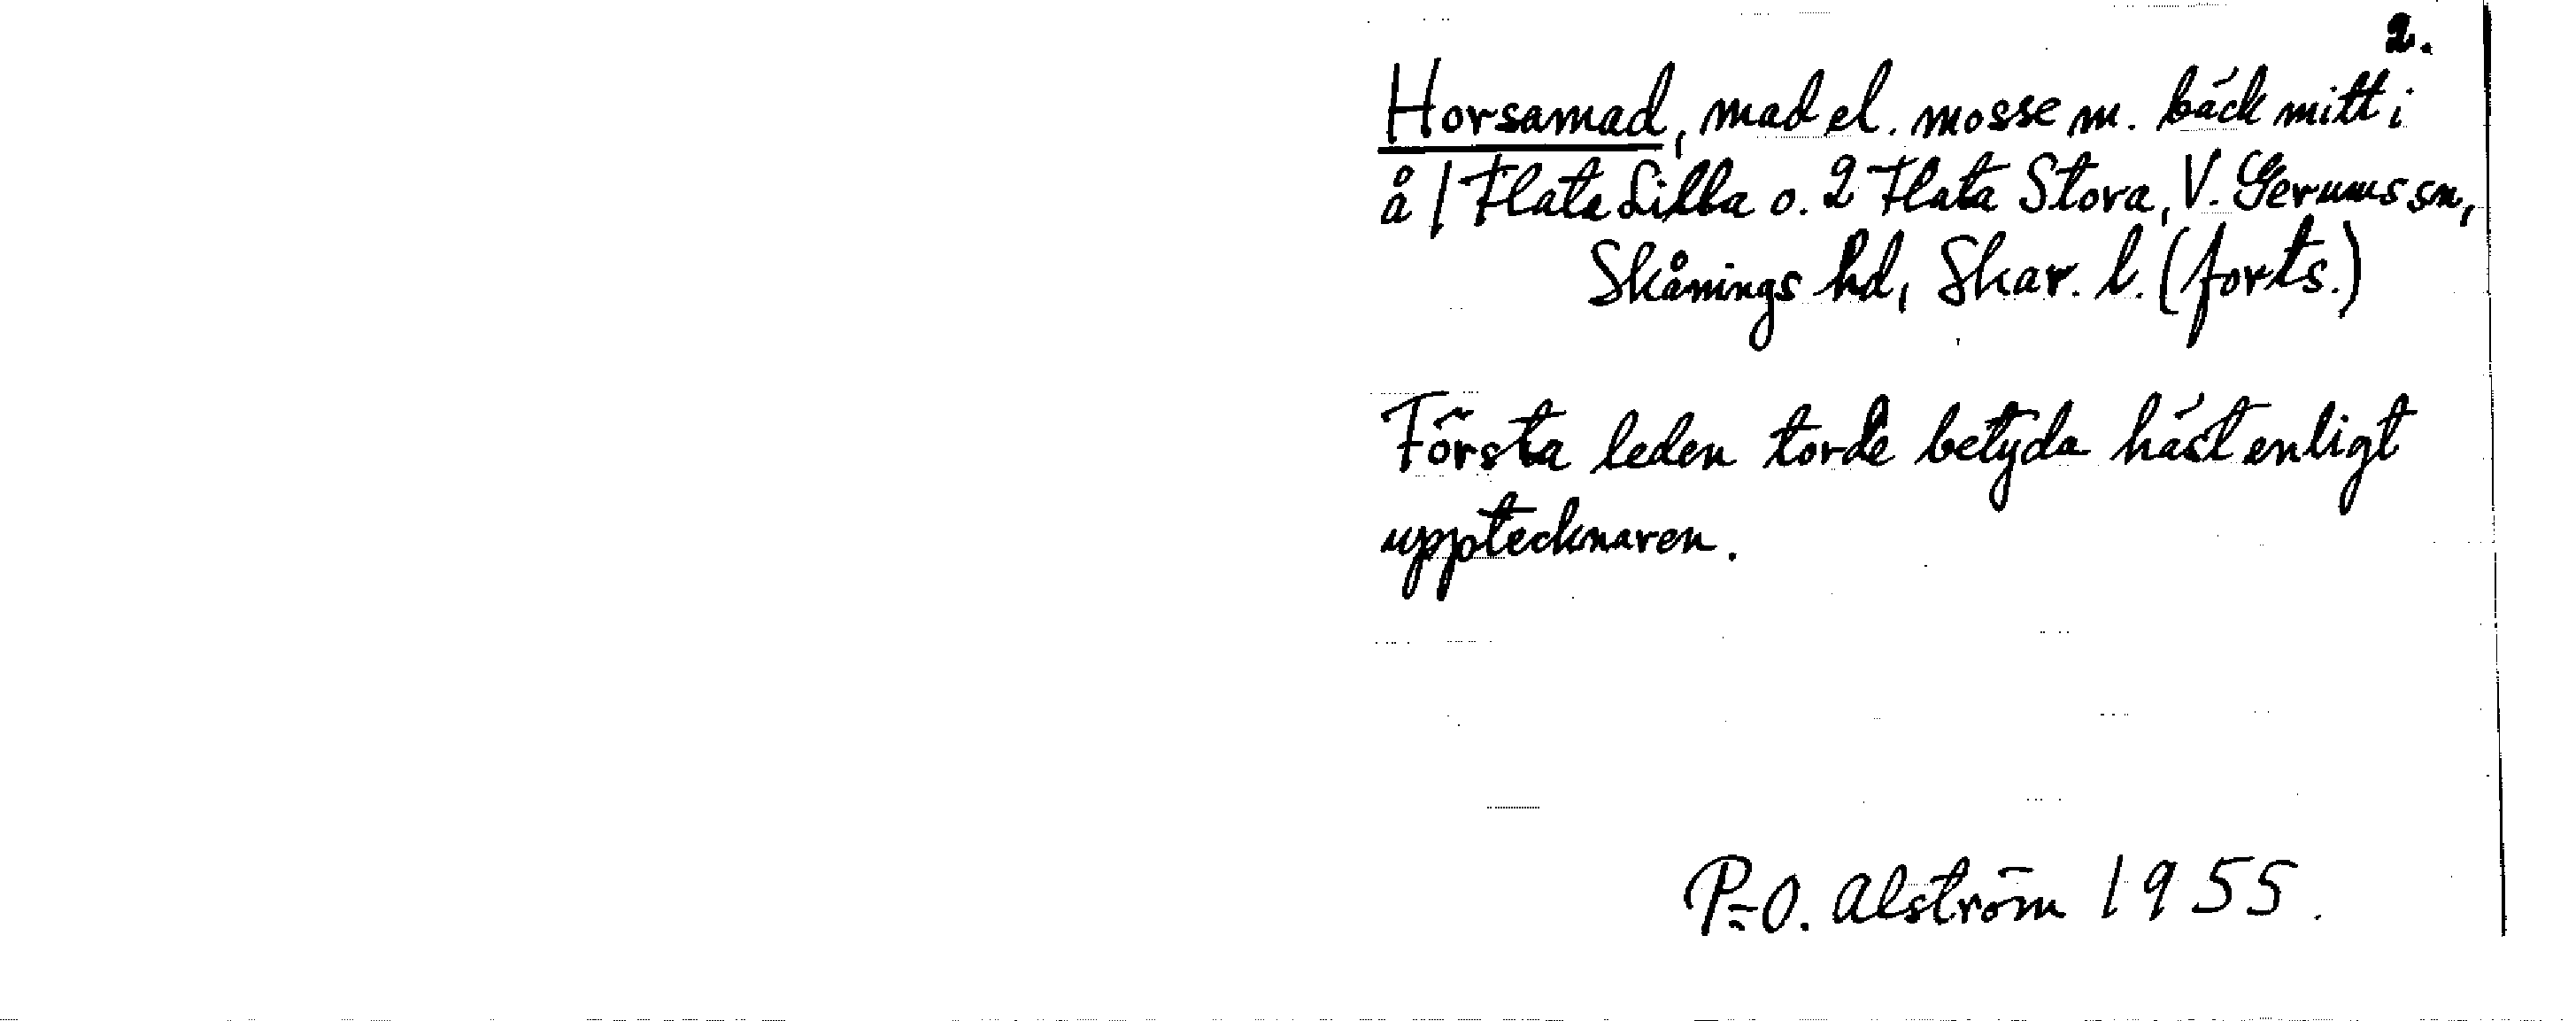 2.
Horsamad, mad el. mosse m. bäck mitt i
å 1 Flata Lilla o. 2 Flata Stora, V. Gerums sn,
Skånings hd, Skar. l. (forts.)
Första leden torde betyda häst enligt
upptecknaren.
P-O. Alström 1955.